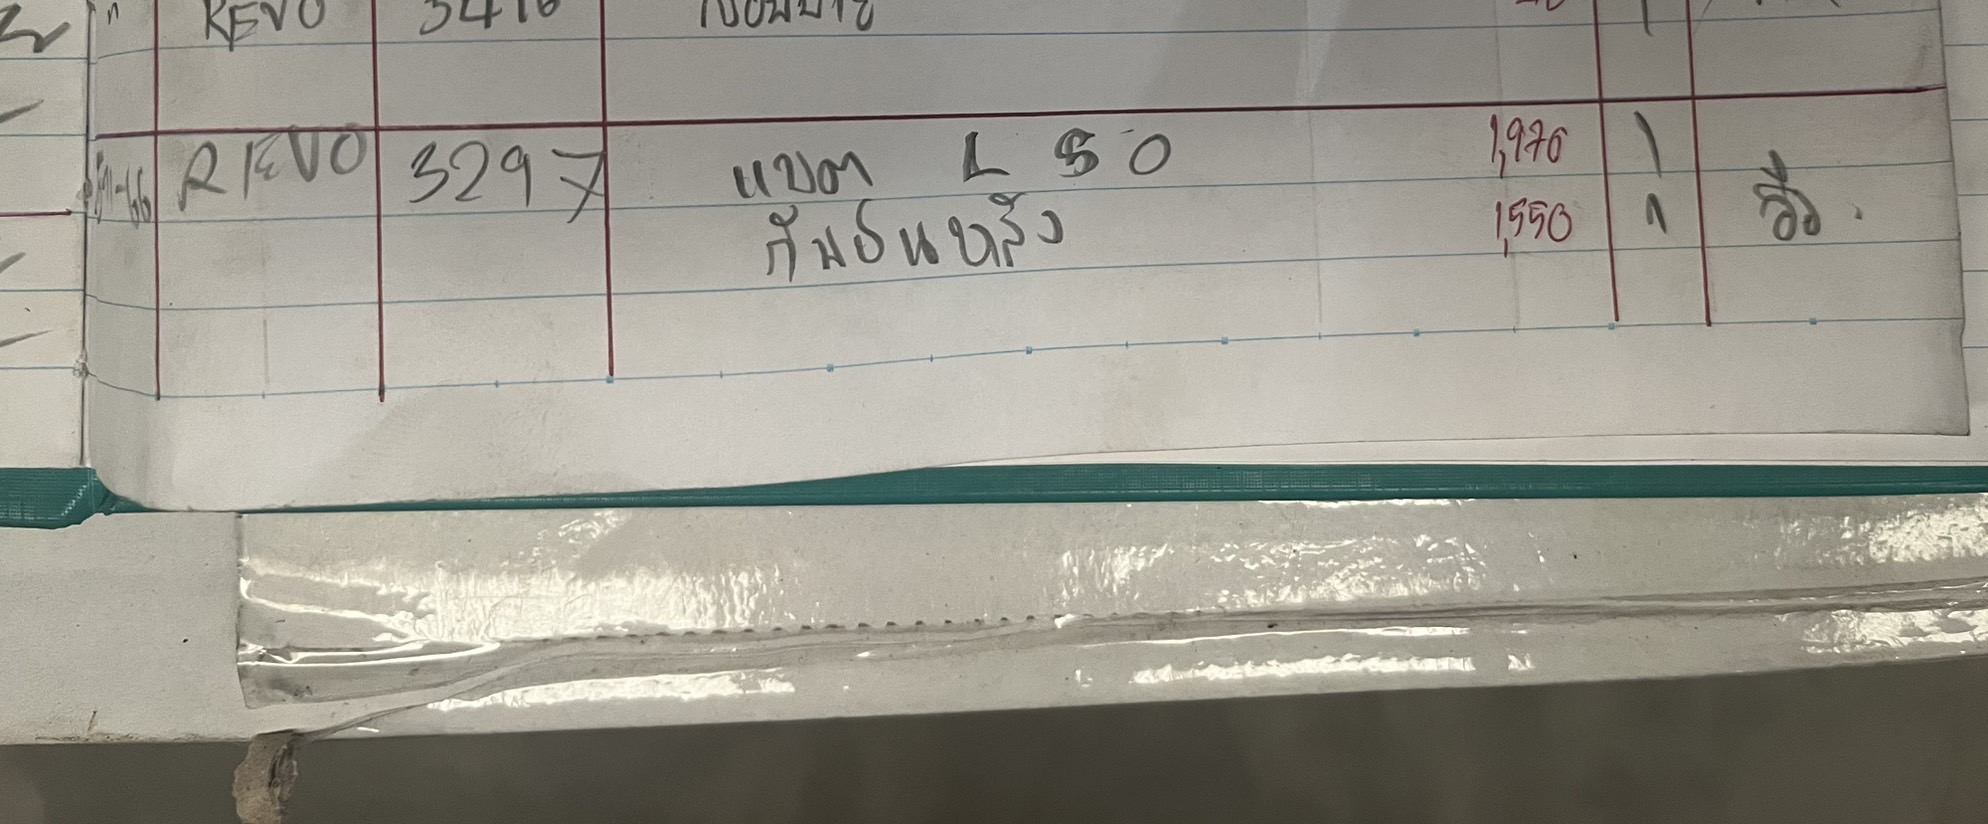 REVO 3416
REVO 3297 แบต L 50 1,970 1
กันชนหลัง 1,550 1